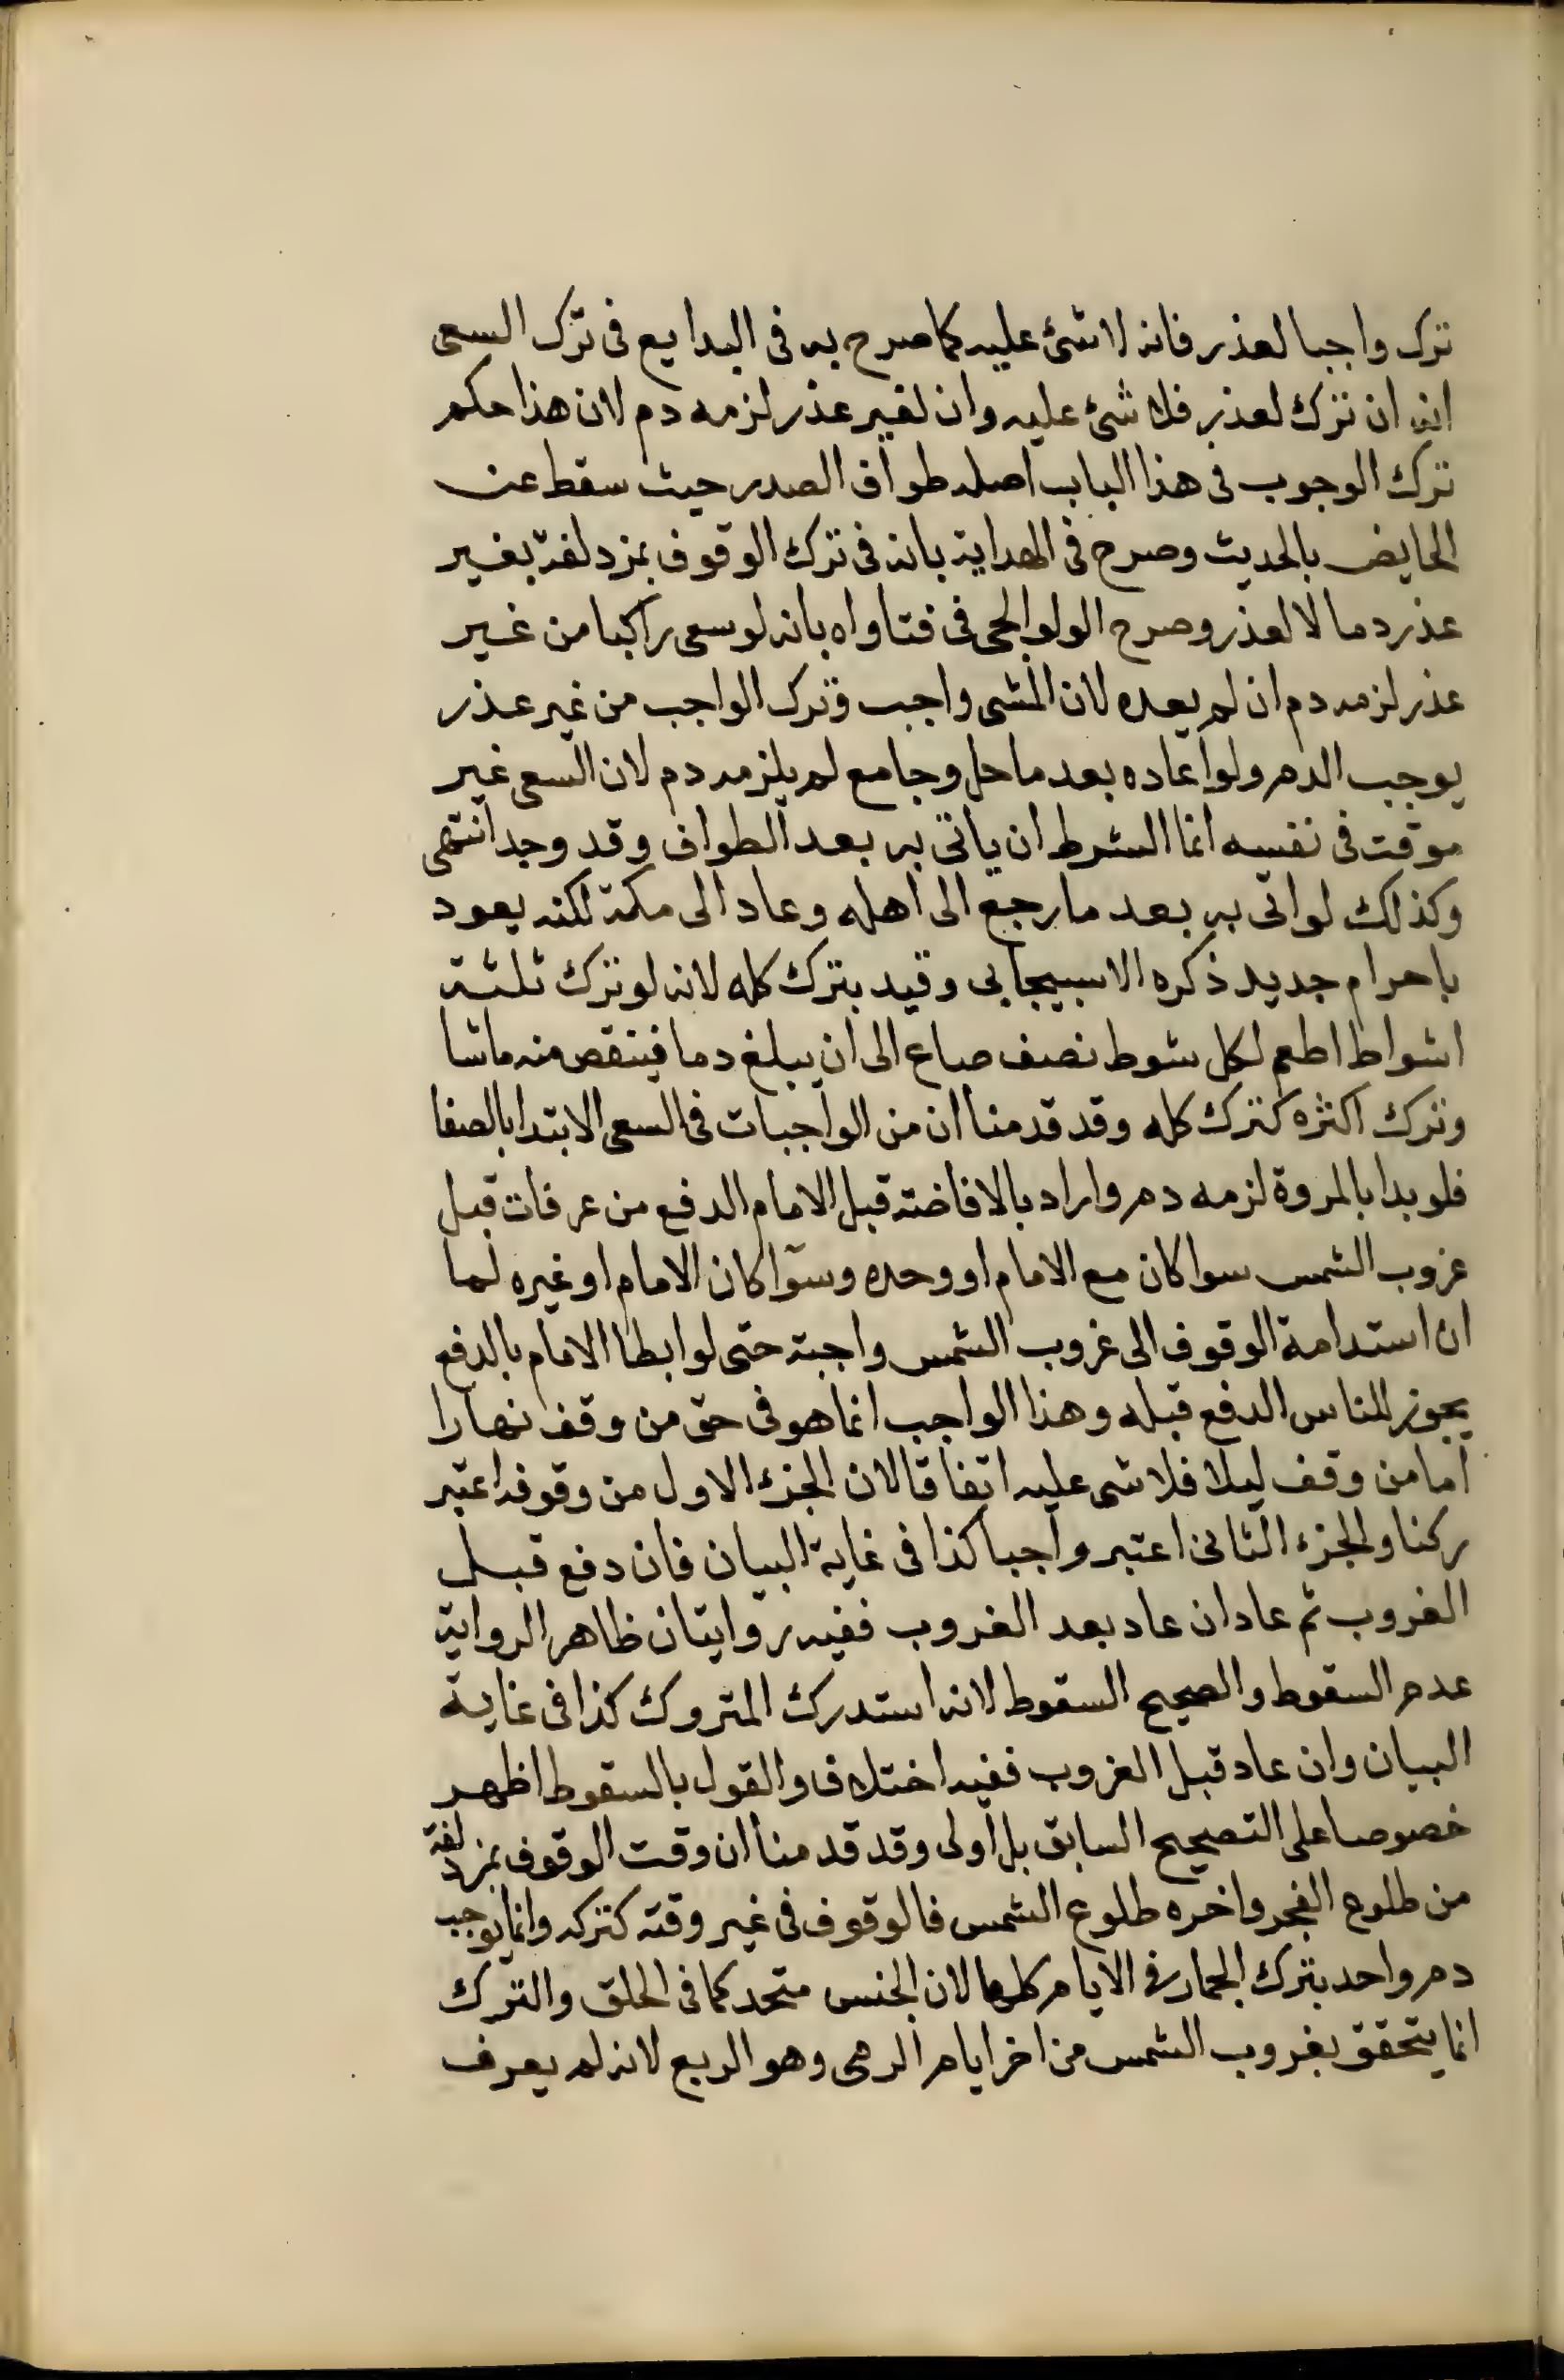 ترك واجبا لعذر فانه لا شئ عليه كما صرح به فى البدايع فى ترك السعى
انه ان ترك لعذر فلا شئ عليه وان لغير عذر لزمه دم لان هذا حكم
ترك الوجوب فى هذا الباب اصله طواف الصدر حيث سقط عن
الحايض بالحديث وصرح فى الهداية بانه فى ترك الوقوف بمزدلفة بغير
عذر دما لا لعذر وصرح الولوالجى فى فتاواه بانه لو سعى راكبا من غير
عذر لزمه دم ان لم يعده لان المشى واجب وترك الواجب من غير عذر
يوجب الدم ولو اعاده بعد ما حل وجامع لم يلزمه دم لان السعى غير
موقت فى نفسه انما الشرط ان ياتى به بعد الطواف وقد وجد انتهى
وكذلك لو اتى به بعد ما رجع الى اهله وعاد الى مكة لكنه يعود
باحرام جديد ذكره الاسبيجابى وقيد بترك كله لانه لو ترك ثلثة
اشواط اطعم لكل شوط نصف صاع الى ان يبلغ دما فينقص منه ما شا
وترك اكثره كترك كله وقد قدمنا ان من الواجبات فى السعى الابتدا بالصفا
فلو بدا بالمروة لزمه دم واراد بالافاضة قبل الامام الدفع من عرفات قبل
غروب الشمس سوا كان مع الامام او وحده وسوآ كان الامام او غيره لما
ان استدامة الوقوف الى غروب الشمس واجبة حتى لو ابطا الامام بالدفع
يجوز للناس الدفع قبله وهذا الواجب انما هو فى حق من وقف نهارا
اما من وقف ليلا فلا شى عليه اتفاقا لان الجزء الاول من وقوفه اعتبر
ركنا والجزء الثانى اعتبر واجبا كذا فى غاية البيان فان دفع قبل
الغروب ثم عاد ان عاد بعد الغروب ففيه روايتان ظاهر الرواية
عدم السقوط والصحيح السقوط لانه استدرك المتروك كذا فى غاية
البيان وان عاد قبل الغروب ففيه اختلاف والقول بالسقوط اظهر
خصوصا على التصحيح السابق بل اولى وقد قدمنا ان وقت الوقوف بمزدلفة
من طلوع الفجر واخره طلوع الشمس فالوقوف فى غير وقته كتركه وانما يوجب
دم واحد بترك الجمار فى الايام كلها لان الجنس متحد كما فى الحلق والترك
انما يتحقق بغروب الشمس من اخر ايام الرمى وهو الربع لانه لم يعرف